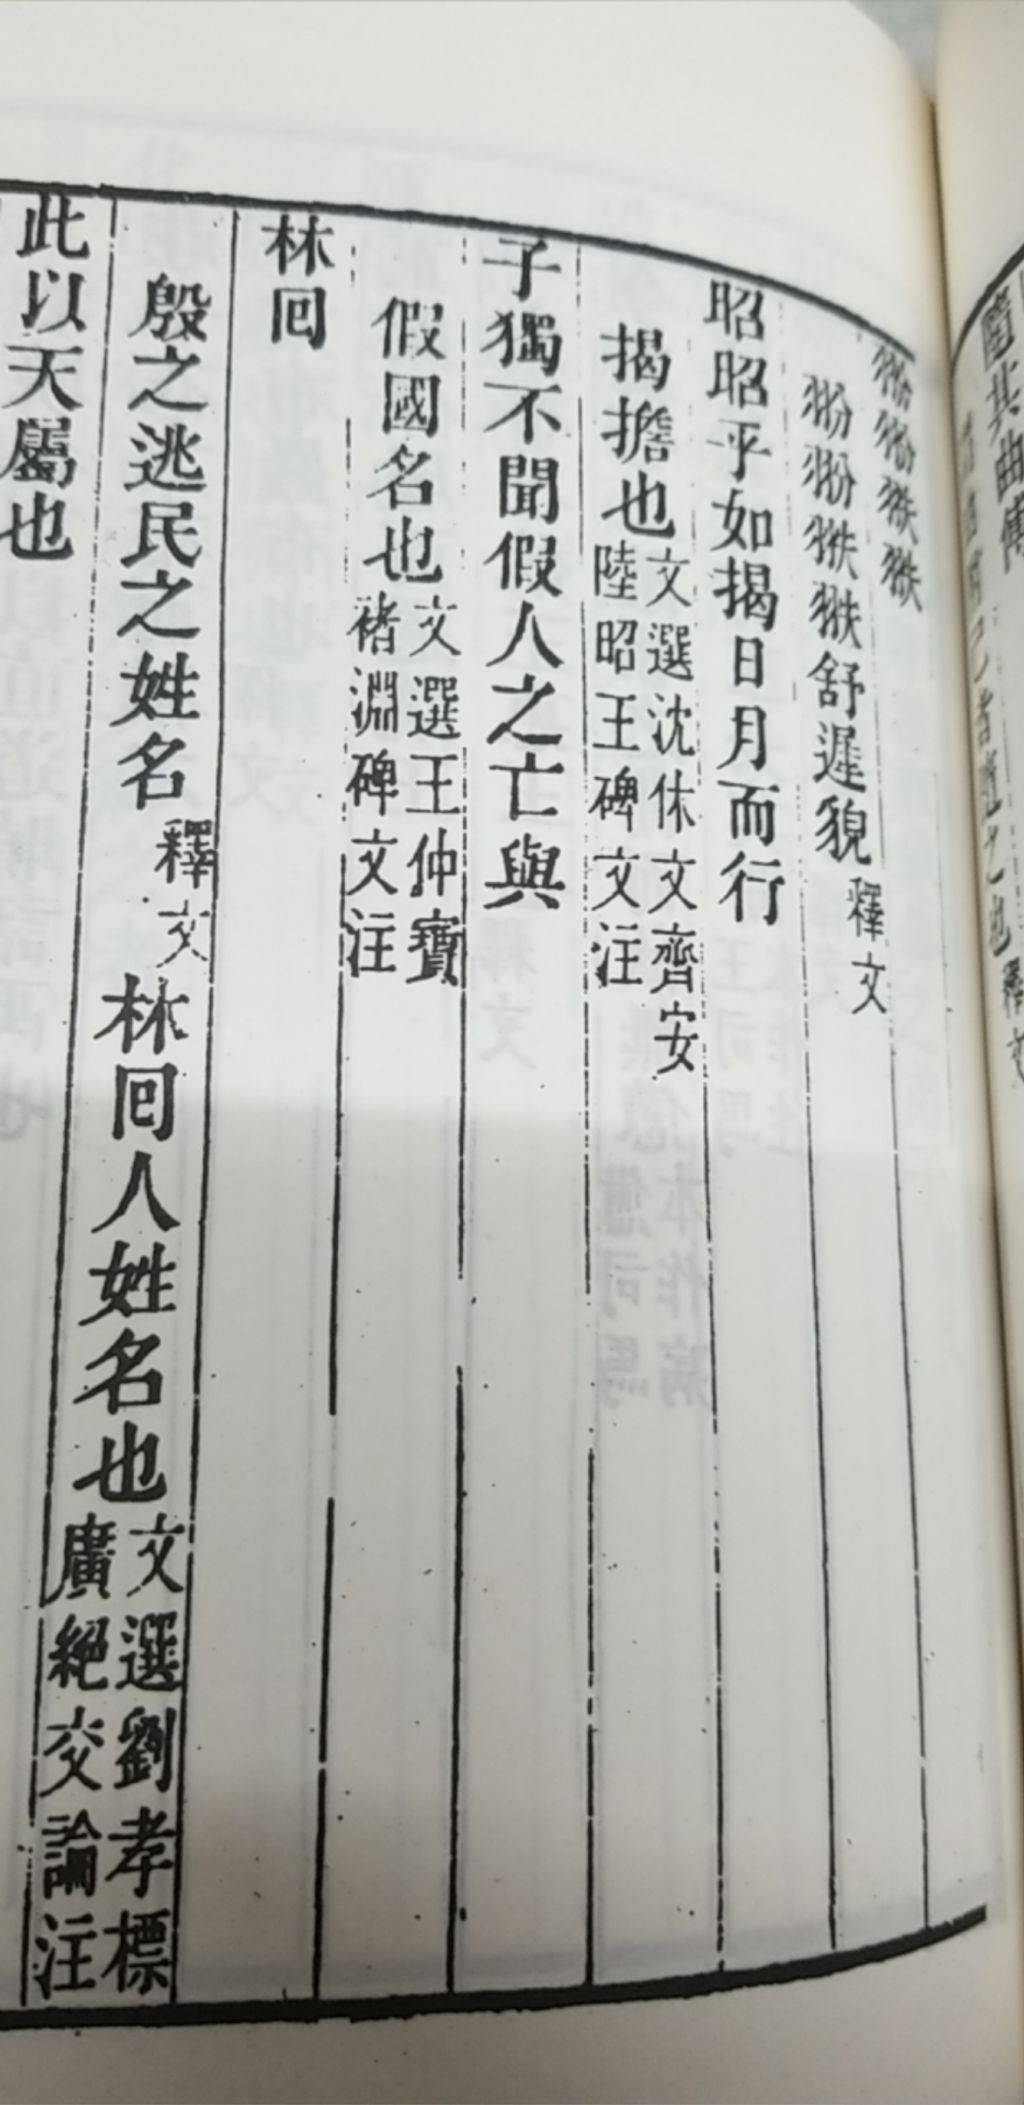 翂翂翐翐
翂翂翐翐舒遲貌釋文
昭昭乎如揭日月而行
揭擔也文選沈休文齊安陸昭王碑文注
子獨不聞假人之亡與
假國名也文選王仲寶褚淵碑文注
林回
殷之逃民之姓名釋文林回人姓名也文選劉孝標廣絕交論注
此以天屬也